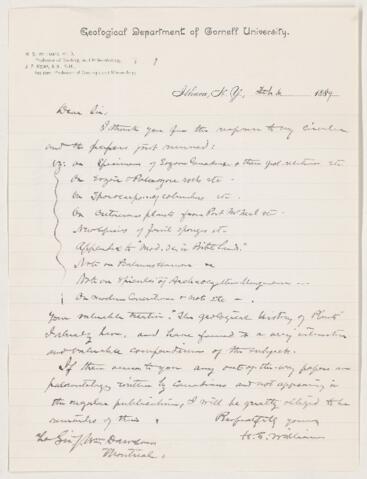 Geological Department of Cornell University.
H. S. Williams, Ph. D.
Professor of Geology and Palaeontology.
Assistant Professor of Geology and Mineralogy.
Ithaca, N. Y., Feb 1889
Dear Sir,
I thank you for the response to my circular
and the papers just received:
viz: on Specimens of Eozoon Canadense & their geol. relations etc
On Eozoic & Palaeozoic rocks etc
On Sporocarps columbus etc
On Cretaceous plants from Port McNeil etc
New species of fossil sponges etc
Appendix to "Mod. Sci. in Bible Lands."
Note on Balanus Hameri
Note on Spicules of Archaeocyathus
On modern Concretions & note etc
Your valuable treatise "The geological history of Plants"
I already have, and have found to a very
and valuable compendium of the subject.
If there occur to you any out-of-the-way papers on
palaeontology written by Canadians and not appearing in
the regular publications, I will be greatly obliged to be
reminded of them.
Respectfully yours
H. S. Williams
To Sir J. Wm Dawson
Montreal.